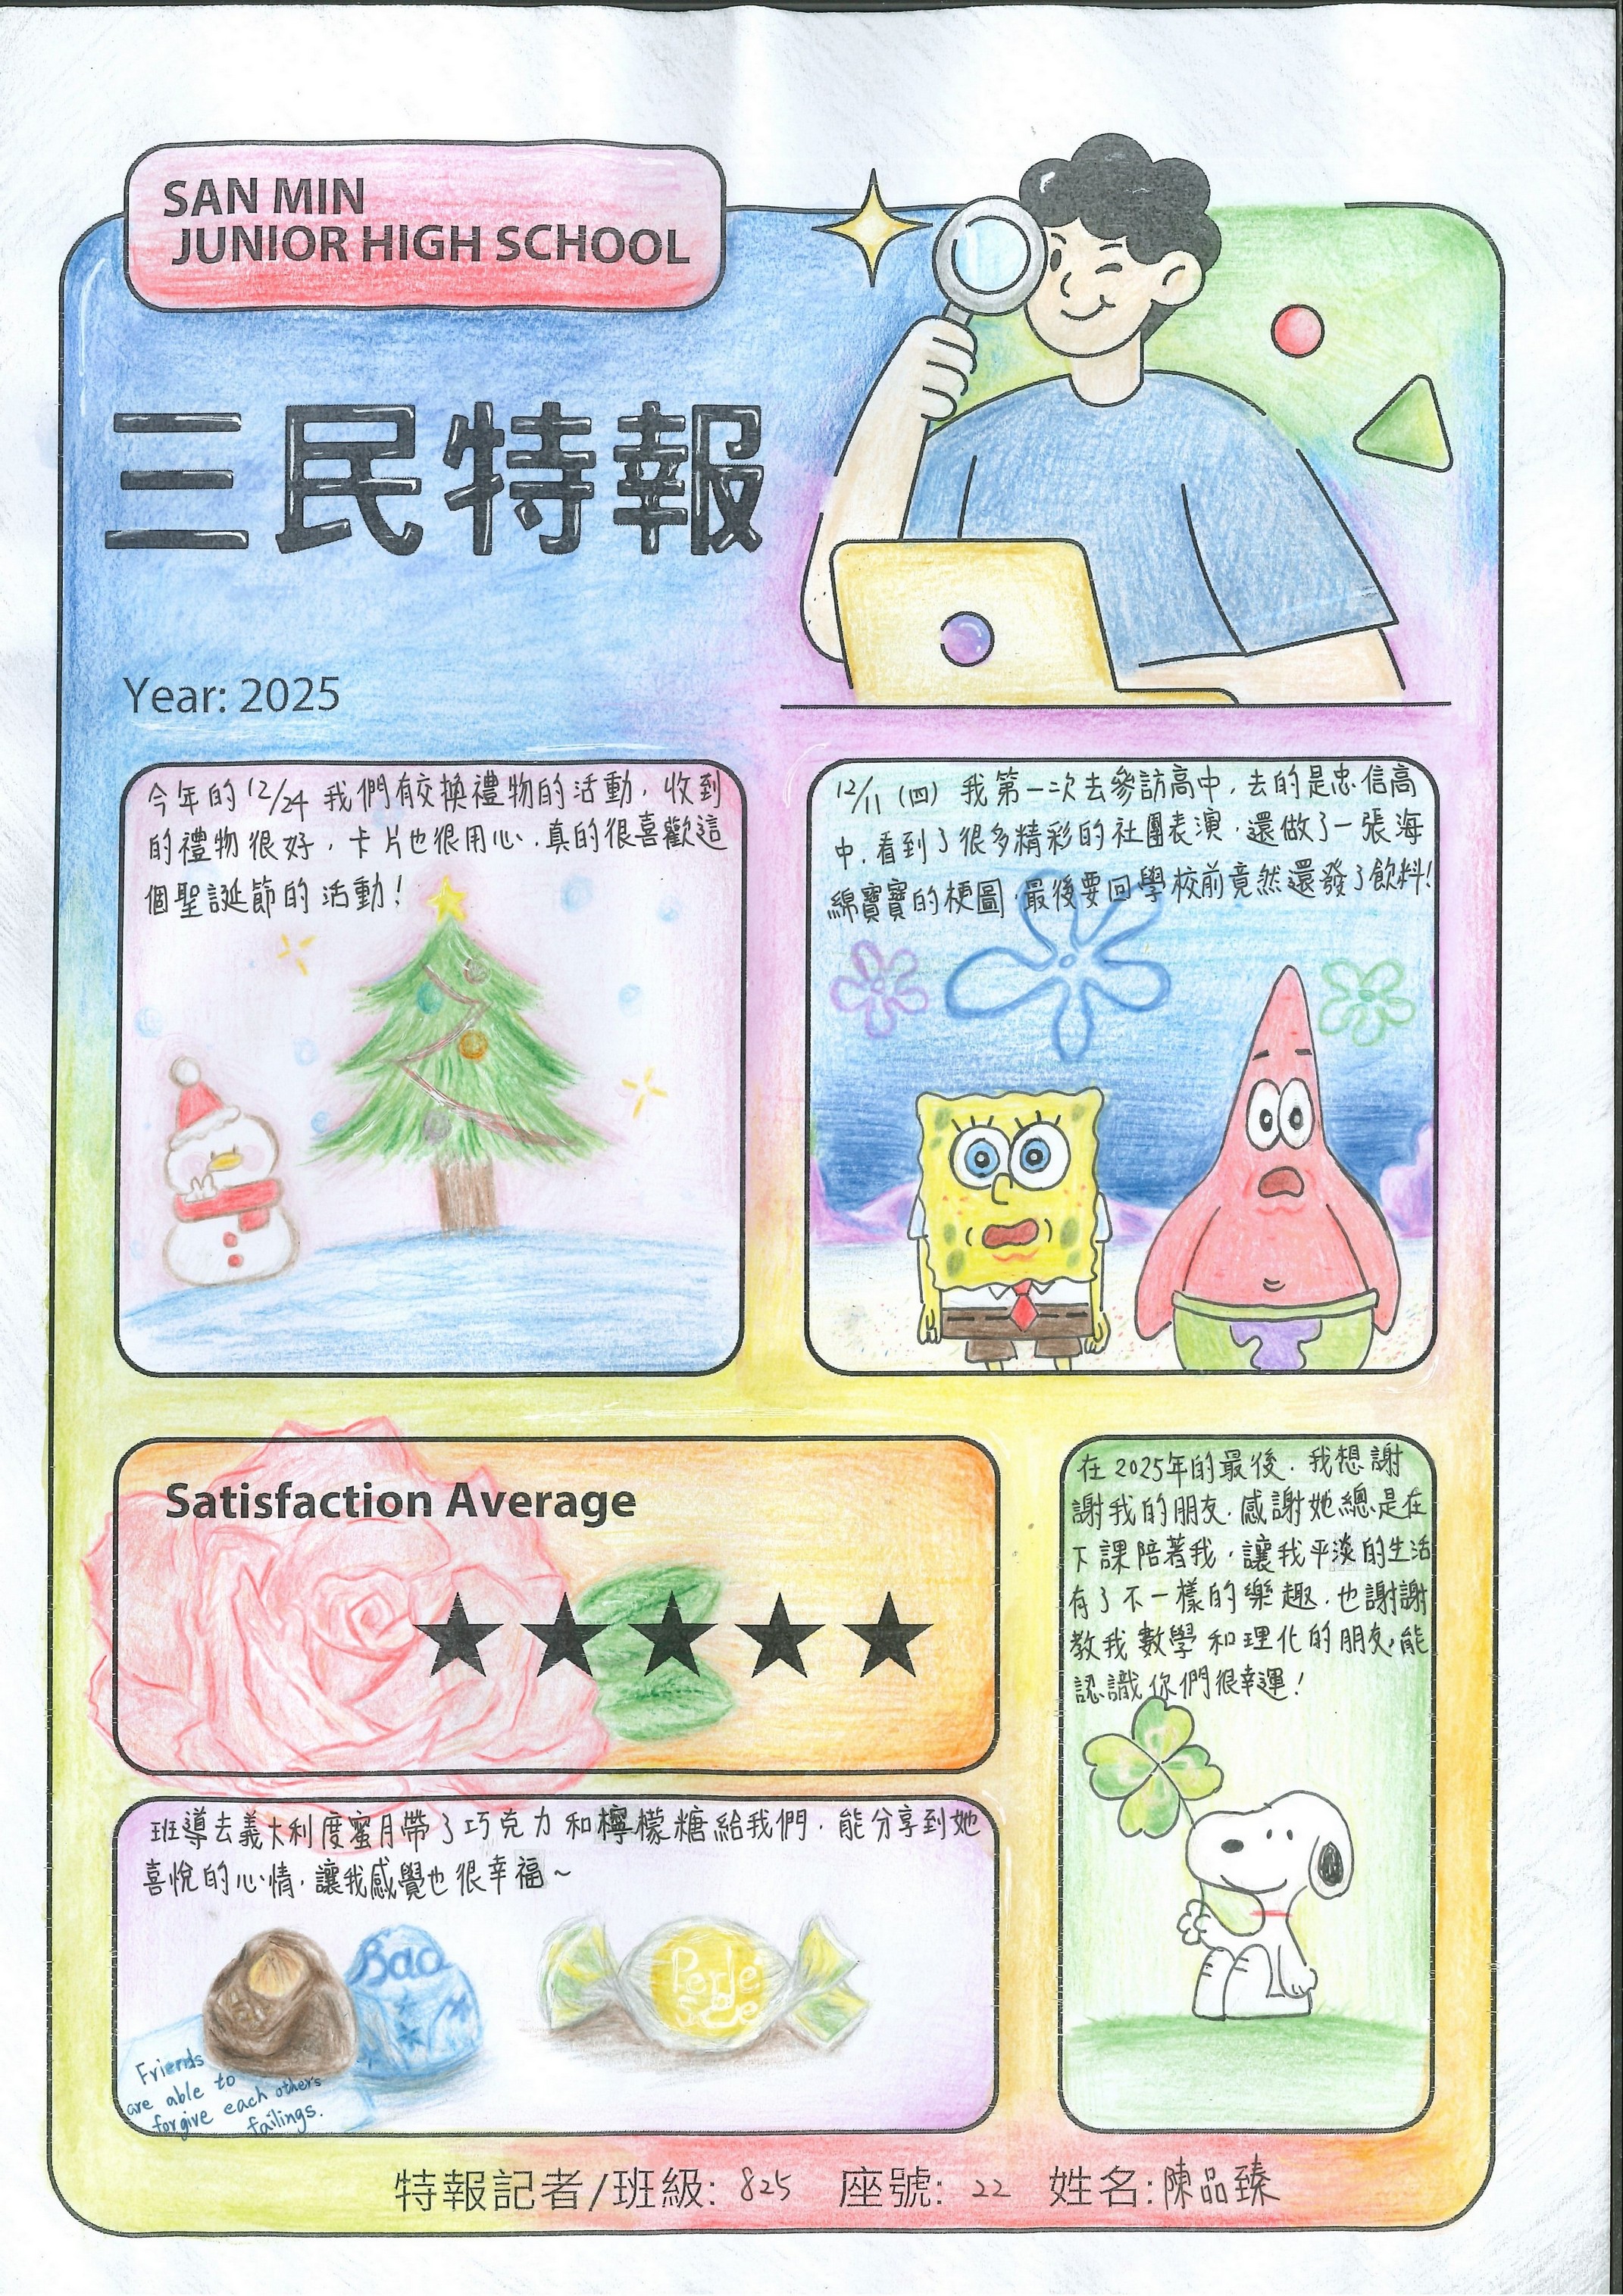 SAN MIN
JUNIOR HIGH SCHOOL
三民特報
Year: 2025
今年的12/24 我們有交換禮物的活動，收到
的禮物很好，卡片也很用心，真的很喜歡這
個聖誕節的活動！
12/11（四）我第一次去參訪高中，去的是忠信高
中，看到了很多精彩的社團表演，還做了一張海
綿寶寶的梗圖，最後要回學校前竟然還發了飲料！
Satisfaction Average
★★★★★
在2025年的最後，我想謝
謝我的朋友，感謝她總是在
下課陪著我，讓我平淡的生活
有了不一樣的樂趣，也謝謝
教我數學和理化的朋友，能
認識你們很幸運！
班導去義大利度蜜月帶了巧克力和檸檬糖給我們，能分享到她
喜悅的心情，讓我感覺也很幸福~
Bao
Perle
Friends
are able to
forgive each others
failings.
特報記者/班級: 825 座號: 22 姓名:陳品臻